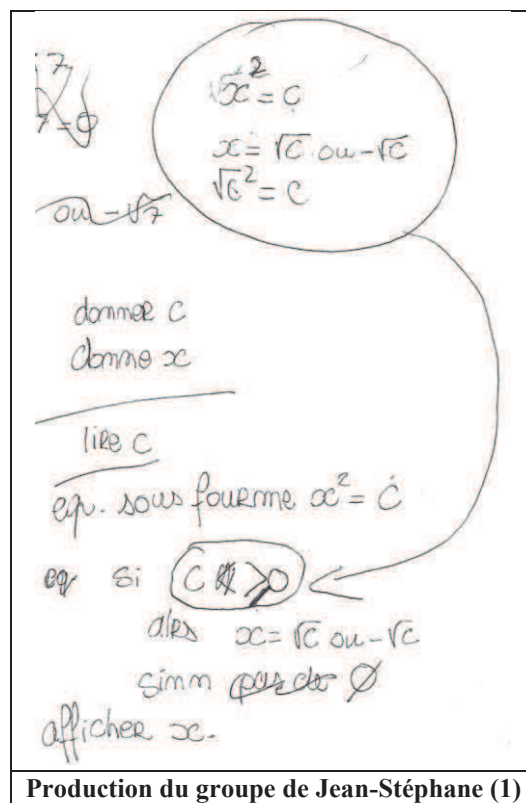 7
7=0
x² = C
x = √C ou -√C
√C² = C
ou -√7
donner C
donne x
lire C
eq. sous fourme x² = C
eq si C > 0
alrs x = √C ou -√C
sinn pas de ∅
afficher x.
Production du groupe de Jean-Stéphane (1)